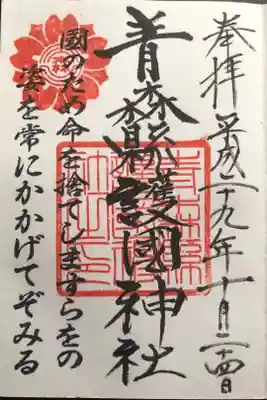 奉拝 平成二十九年十月二十四日
青森縣護國神社
國のため命を捨てしますらをの
姿を常にかかげてぞみる